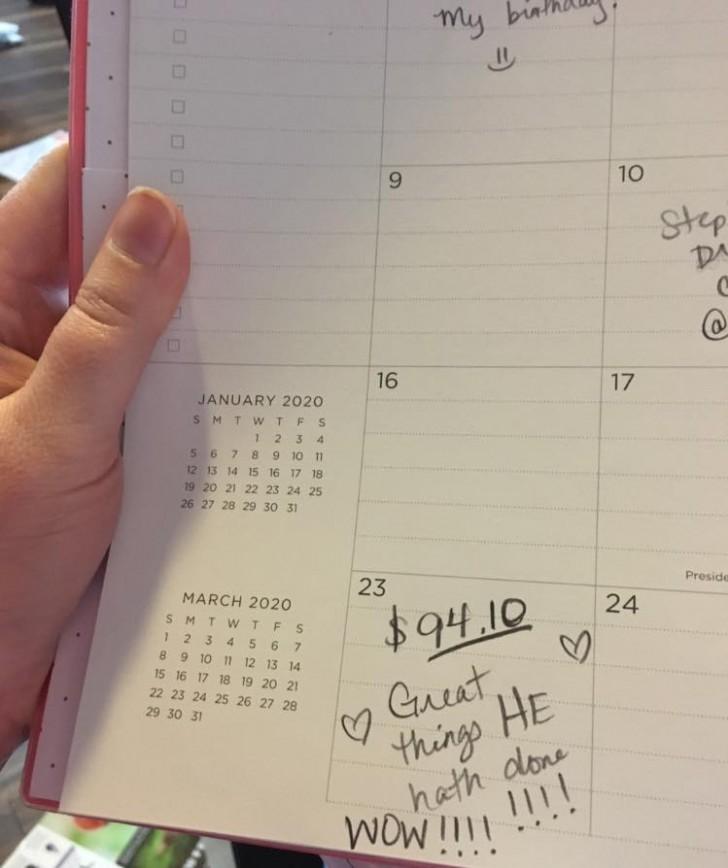 My birthday!
9
10
Step
@
JANUARY 2020
S M T W T F S
1 2 3 4
5 6 7 8 9 10 11
12 13 14 15 16 17 18
19 20 21 22 23 24 25
26 27 28 29 30 31
16
17
Preside
MARCH 2020
S M T W T F S
1 2 3 4 5 6 7
8 9 10 11 12 13 14
15 16 17 18 19 20 21
22 23 24 25 26 27 28
29 30 31
23
$94.10
Great
things HE
hath done
WOW!!!! !!!!
24